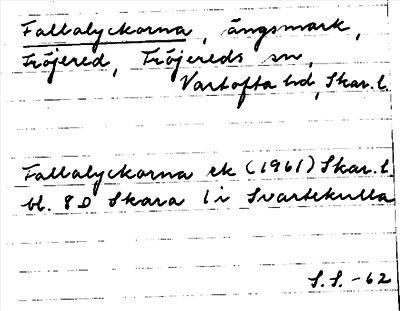 Fallalyckorna, ängsmark,
Fröjered, Fröjereds sn,
Vartofta hd, Skar. l.
Fallalyckorna ek (1961) Skar. l.
bl. 8D Skara 1 i Svartekulla
S.S. -62